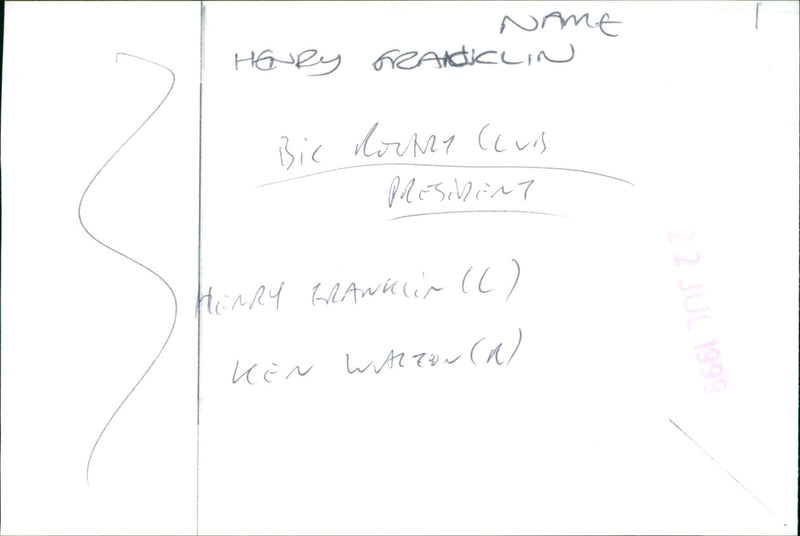 NAME
HENRY FRANKLIN
Bic ROTARY CLUB
PRESIDENT
HENRY FRANKLIN (L)
KEN WALTON (R)
22 JUL 1999